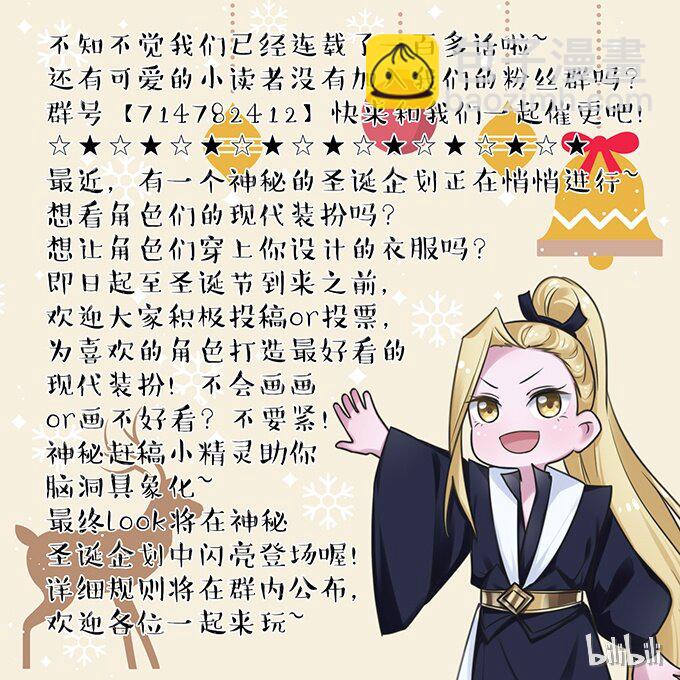 不知不觉我们已经连载了一百多话啦~
包子漫畫
还有可爱的小读者没有加入我们的粉丝群吗?
baozimh.com
群号【714782412】快来和我们一起催更吧!
☆★☆★☆★☆★☆★☆★☆★☆★☆★
最近,有一个神秘的圣诞企划正在悄悄进行~
想看角色们的现代装扮吗?
想让角色们穿上你设计的衣服吗?
即日起至圣诞节到来之前,
欢迎大家积极投稿or投票,
为喜欢的角色打造最好看的
现代装扮!不会画画
or画不好看?不要紧!
神秘赶稿小精灵助你
脑洞具象化~
最终look将在神秘
圣诞企划中闪亮登场喔!
详细规则将在群内公布,
欢迎各位一起来玩~
bilibili